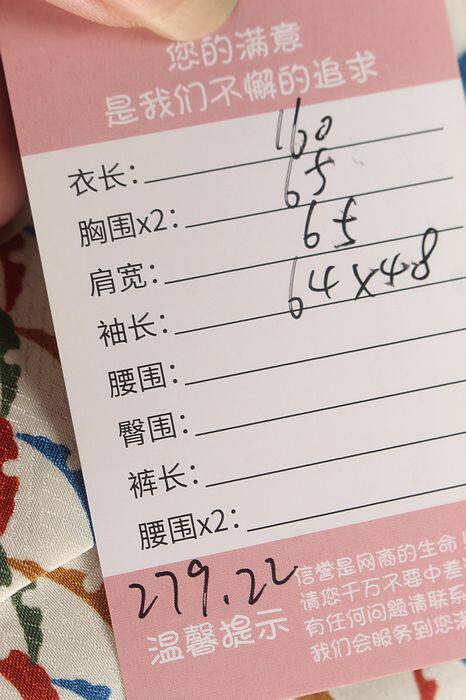 您的满意
是我们不懈的追求
衣长: 160
胸围x2: 65
肩宽: 65
袖长: 64x48
腰围:
臀围:
裤长:
腰围x2:
279.22
温馨提示
信誉是网商的生命
请您千万不要中差
有任何问题请联系
我们会服务到您满